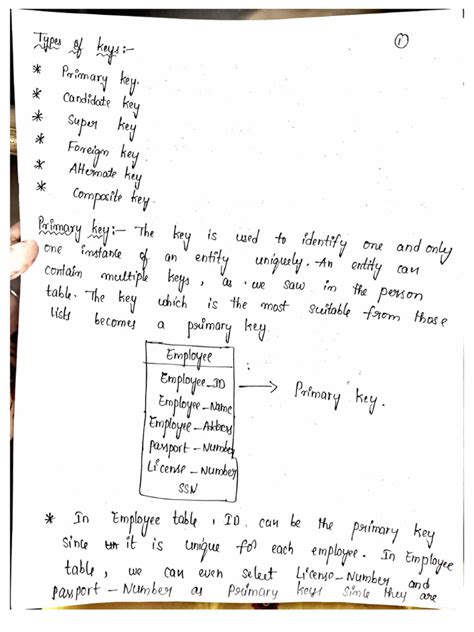 ①
Types of keys:-
* Primary key.
* Candidate key
* Super key
* Foreign key.
* Alternate key
* Composite key.
Primary key:- The key is used to identify one and only
one instance of an entity uniquely. An entity can
contain multiple keys, as we saw in the person
table. The key which is the most suitable from those
lists becomes a primary key.
Employee
Employee_ID → Primary key.
Employee_Name
Employee_Address
passport_Number
License_Number
SSN
* In Employee table, ID can be the primary key
Sinle it is unique for each employee. In Employee
table, we can even select License_Number and
passport_Number as primary keys Sinle they are